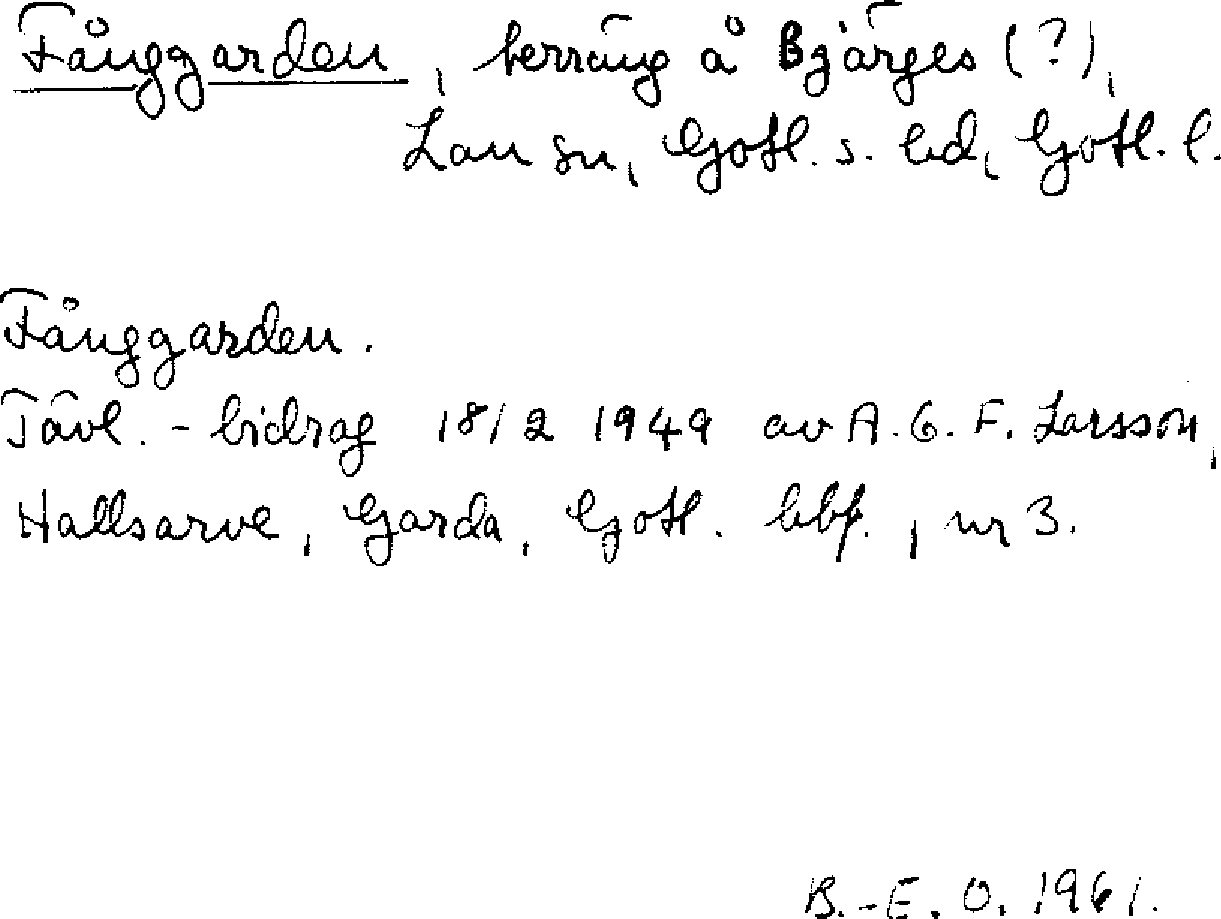 Fånggarden, terräng å Bjärges (?),
Lau sn, Gotl. s. hd, Gotl. l.
Fånggarden.
Tävl.-bidrag 18/2 1949 av A. G. F. Larsson,
Hallsarve, Garda, Gotl. hbf., nr 3.
B.-E. O. 1961.